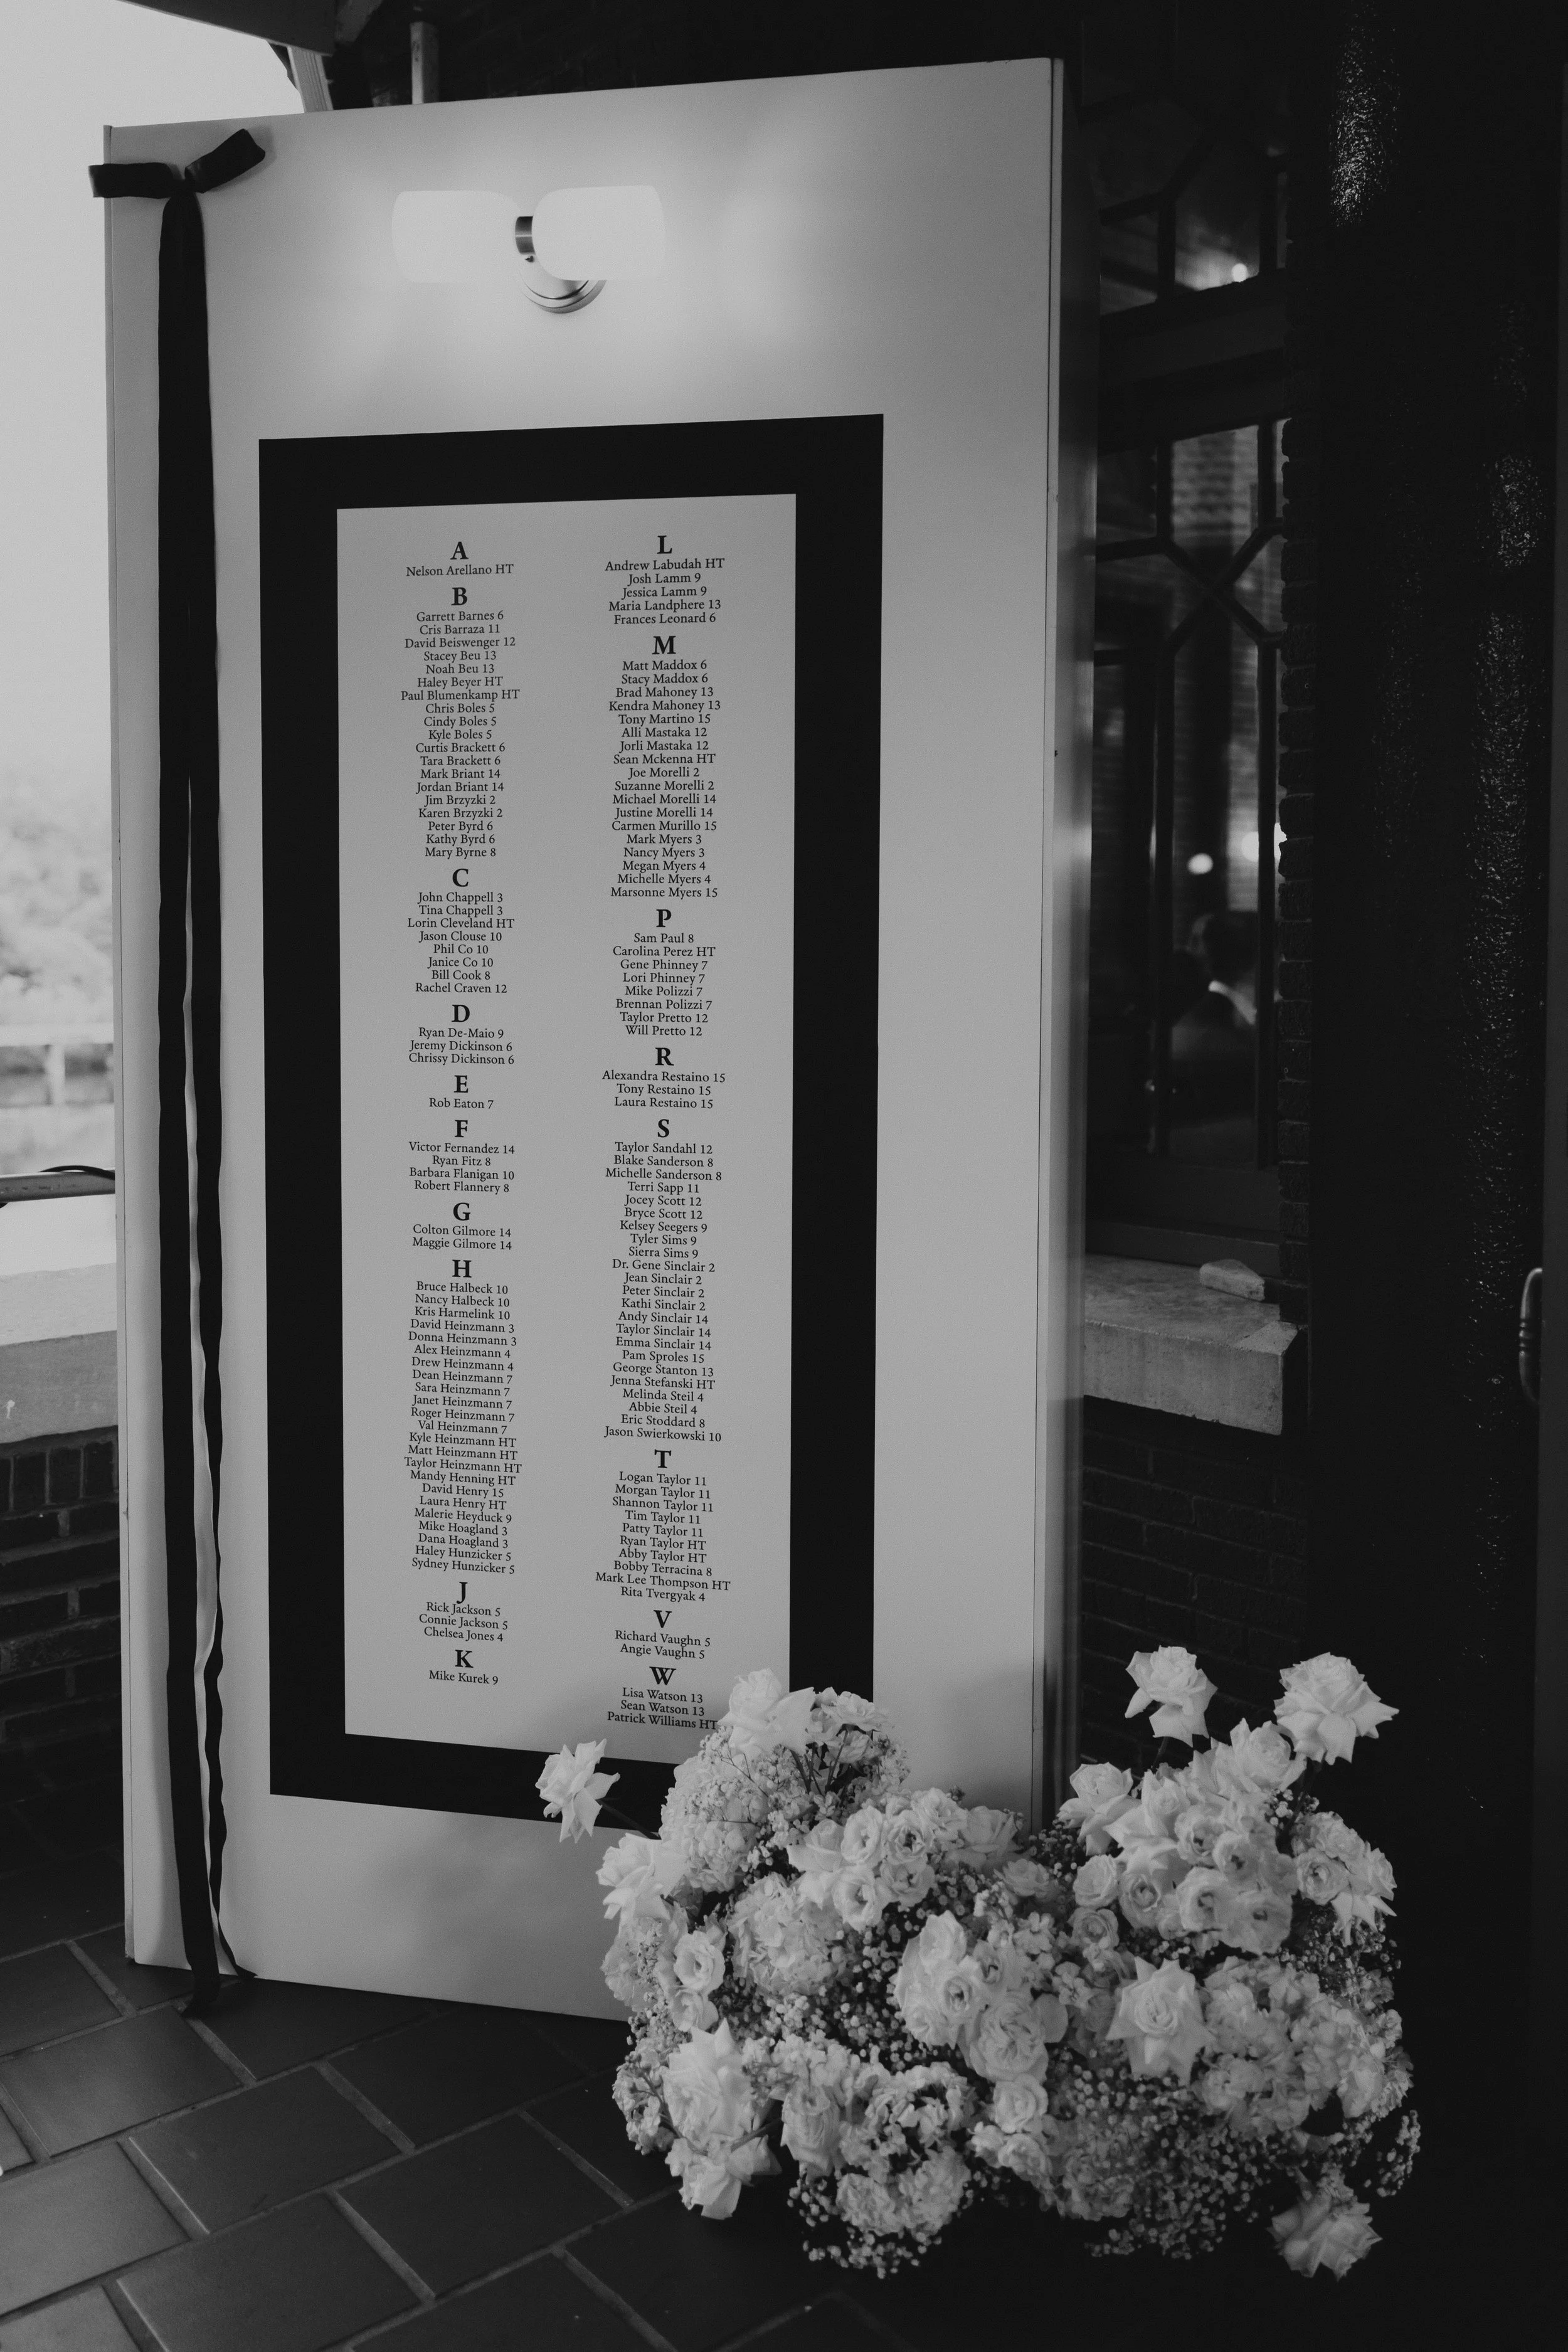 A
Nelson Arellano HT
B
Garrett Barnes 6
Cris Barraza 11
David Beiswenger 12
Stacey Beu 13
Noah Beu 13
Haley Beyer HT
Paul Blumenkamp HT
Chris Boles 5
Cindy Boles 5
Kyle Boles 5
Curtis Brackett 6
Tara Brackett 6
Mark Briant 14
Jordan Briant 14
Jim Brzyzki 2
Karen Brzyzki 2
Peter Byrd 6
Kathy Byrd 6
Mary Byrne 8
C
John Chappell 3
Tina Chappell 3
Lorin Cleveland HT
Jason Clouse 10
Phil Co 10
Janice Co 10
Bill Cook 8
Rachel Craven 12
D
Ryan De-Maio 9
Jeremy Dickinson 6
Chrissy Dickinson 6
E
Rob Eaton 7
F
Victor Fernandez 14
Ryan Fitz 8
Barbara Flanigan 10
Robert Flannery 8
G
Colton Gilmore 14
Maggie Gilmore 14
H
Bruce Halbeck 10
Nancy Halbeck 10
Kris Harmelink 10
David Heinzmann 3
Donna Heinzmann 3
Alex Heinzmann 4
Drew Heinzmann 4
Dean Heinzmann 7
Sara Heinzmann 7
Janet Heinzmann 7
Roger Heinzmann 7
Val Heinzmann 7
Kyle Heinzmann HT
Matt Heinzmann HT
Taylor Heinzmann HT
Mandy Henning HT
David Henry 15
Laura Henry HT
Malerie Heyduck 9
Mike Hoagland 3
Dana Hoagland 3
Haley Hunzicker 5
Sydney Hunzicker 5
J
Rick Jackson 5
Connie Jackson 5
Chelsea Jones 4
K
Mike Kurek 9
L
Andrew Labudah HT
Josh Lamm 9
Jessica Lamm 9
Maria Landphere 13
Frances Leonard 6
M
Matt Maddox 6
Stacy Maddox 6
Brad Mahoney 13
Kendra Mahoney 13
Tony Martino 15
Alli Mastaka 12
Jorli Mastaka 12
Sean Mckenna HT
Joe Morelli 2
Suzanne Morelli 2
Michael Morelli 14
Justine Morelli 14
Carmen Murillo 15
Mark Myers 3
Nancy Myers 3
Megan Myers 4
Michelle Myers 4
Marsonne Myers 15
P
Sam Paul 8
Carolina Perez HT
Gene Phinney 7
Lori Phinney 7
Mike Polizzi 7
Brennan Polizzi 7
Taylor Pretto 12
Will Pretto 12
R
Alexandra Restaino 15
Tony Restaino 15
Laura Restaino 15
S
Taylor Sandahl 12
Blake Sanderson 8
Michelle Sanderson 8
Terri Sapp 11
Jocey Scott 12
Bryce Scott 12
Kelsey Seegers 9
Tyler Sims 9
Sierra Sims 9
Dr. Gene Sinclair 2
Jean Sinclair 2
Peter Sinclair 2
Kathi Sinclair 2
Andy Sinclair 14
Taylor Sinclair 14
Emma Sinclair 14
Pam Sproles 15
George Stanton 13
Jenna Stefanski HT
Melinda Steil 4
Abbie Steil 4
Eric Stoddard 8
Jason Swierkowski 10
T
Logan Taylor 11
Morgan Taylor 11
Shannon Taylor 11
Tim Taylor 11
Patty Taylor 11
Ryan Taylor HT
Abby Taylor HT
Bobby Terracina 8
Mark Lee Thompson HT
Rita Tvergyak 4
V
Richard Vaughn 5
Angie Vaughn 5
W
Lisa Watson 13
Sean Watson 13
Patrick Williams HT